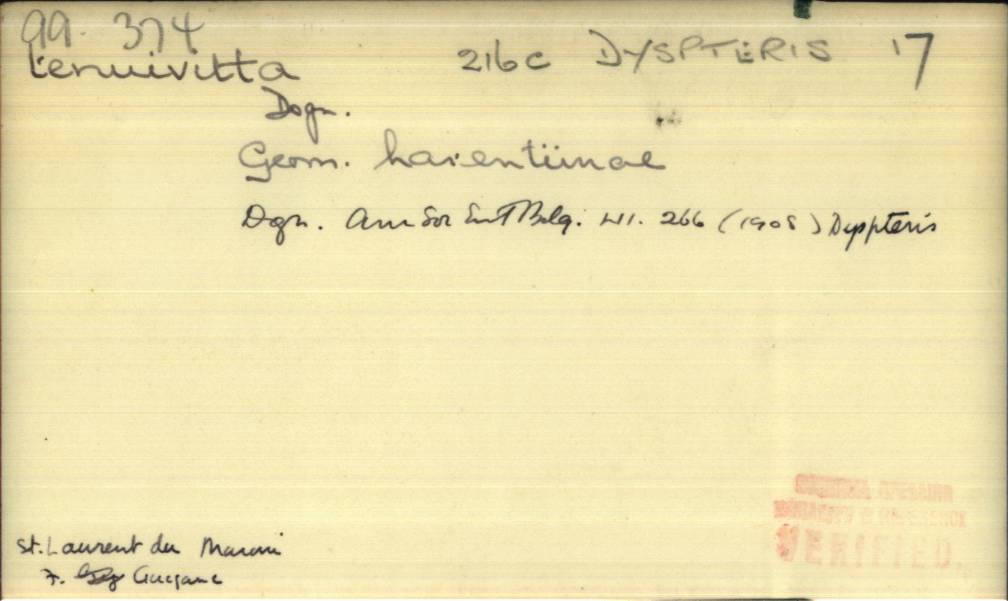 99. 374
tenuivitta 216c DYSPTERIS 17
Dogn.
Geom. larentiinae
Dgn. Ann Soc Ent Belg. LII. 266 (1908) Dyspteris
VERIFIED.
St. Laurent du Maroni
F. Guyane